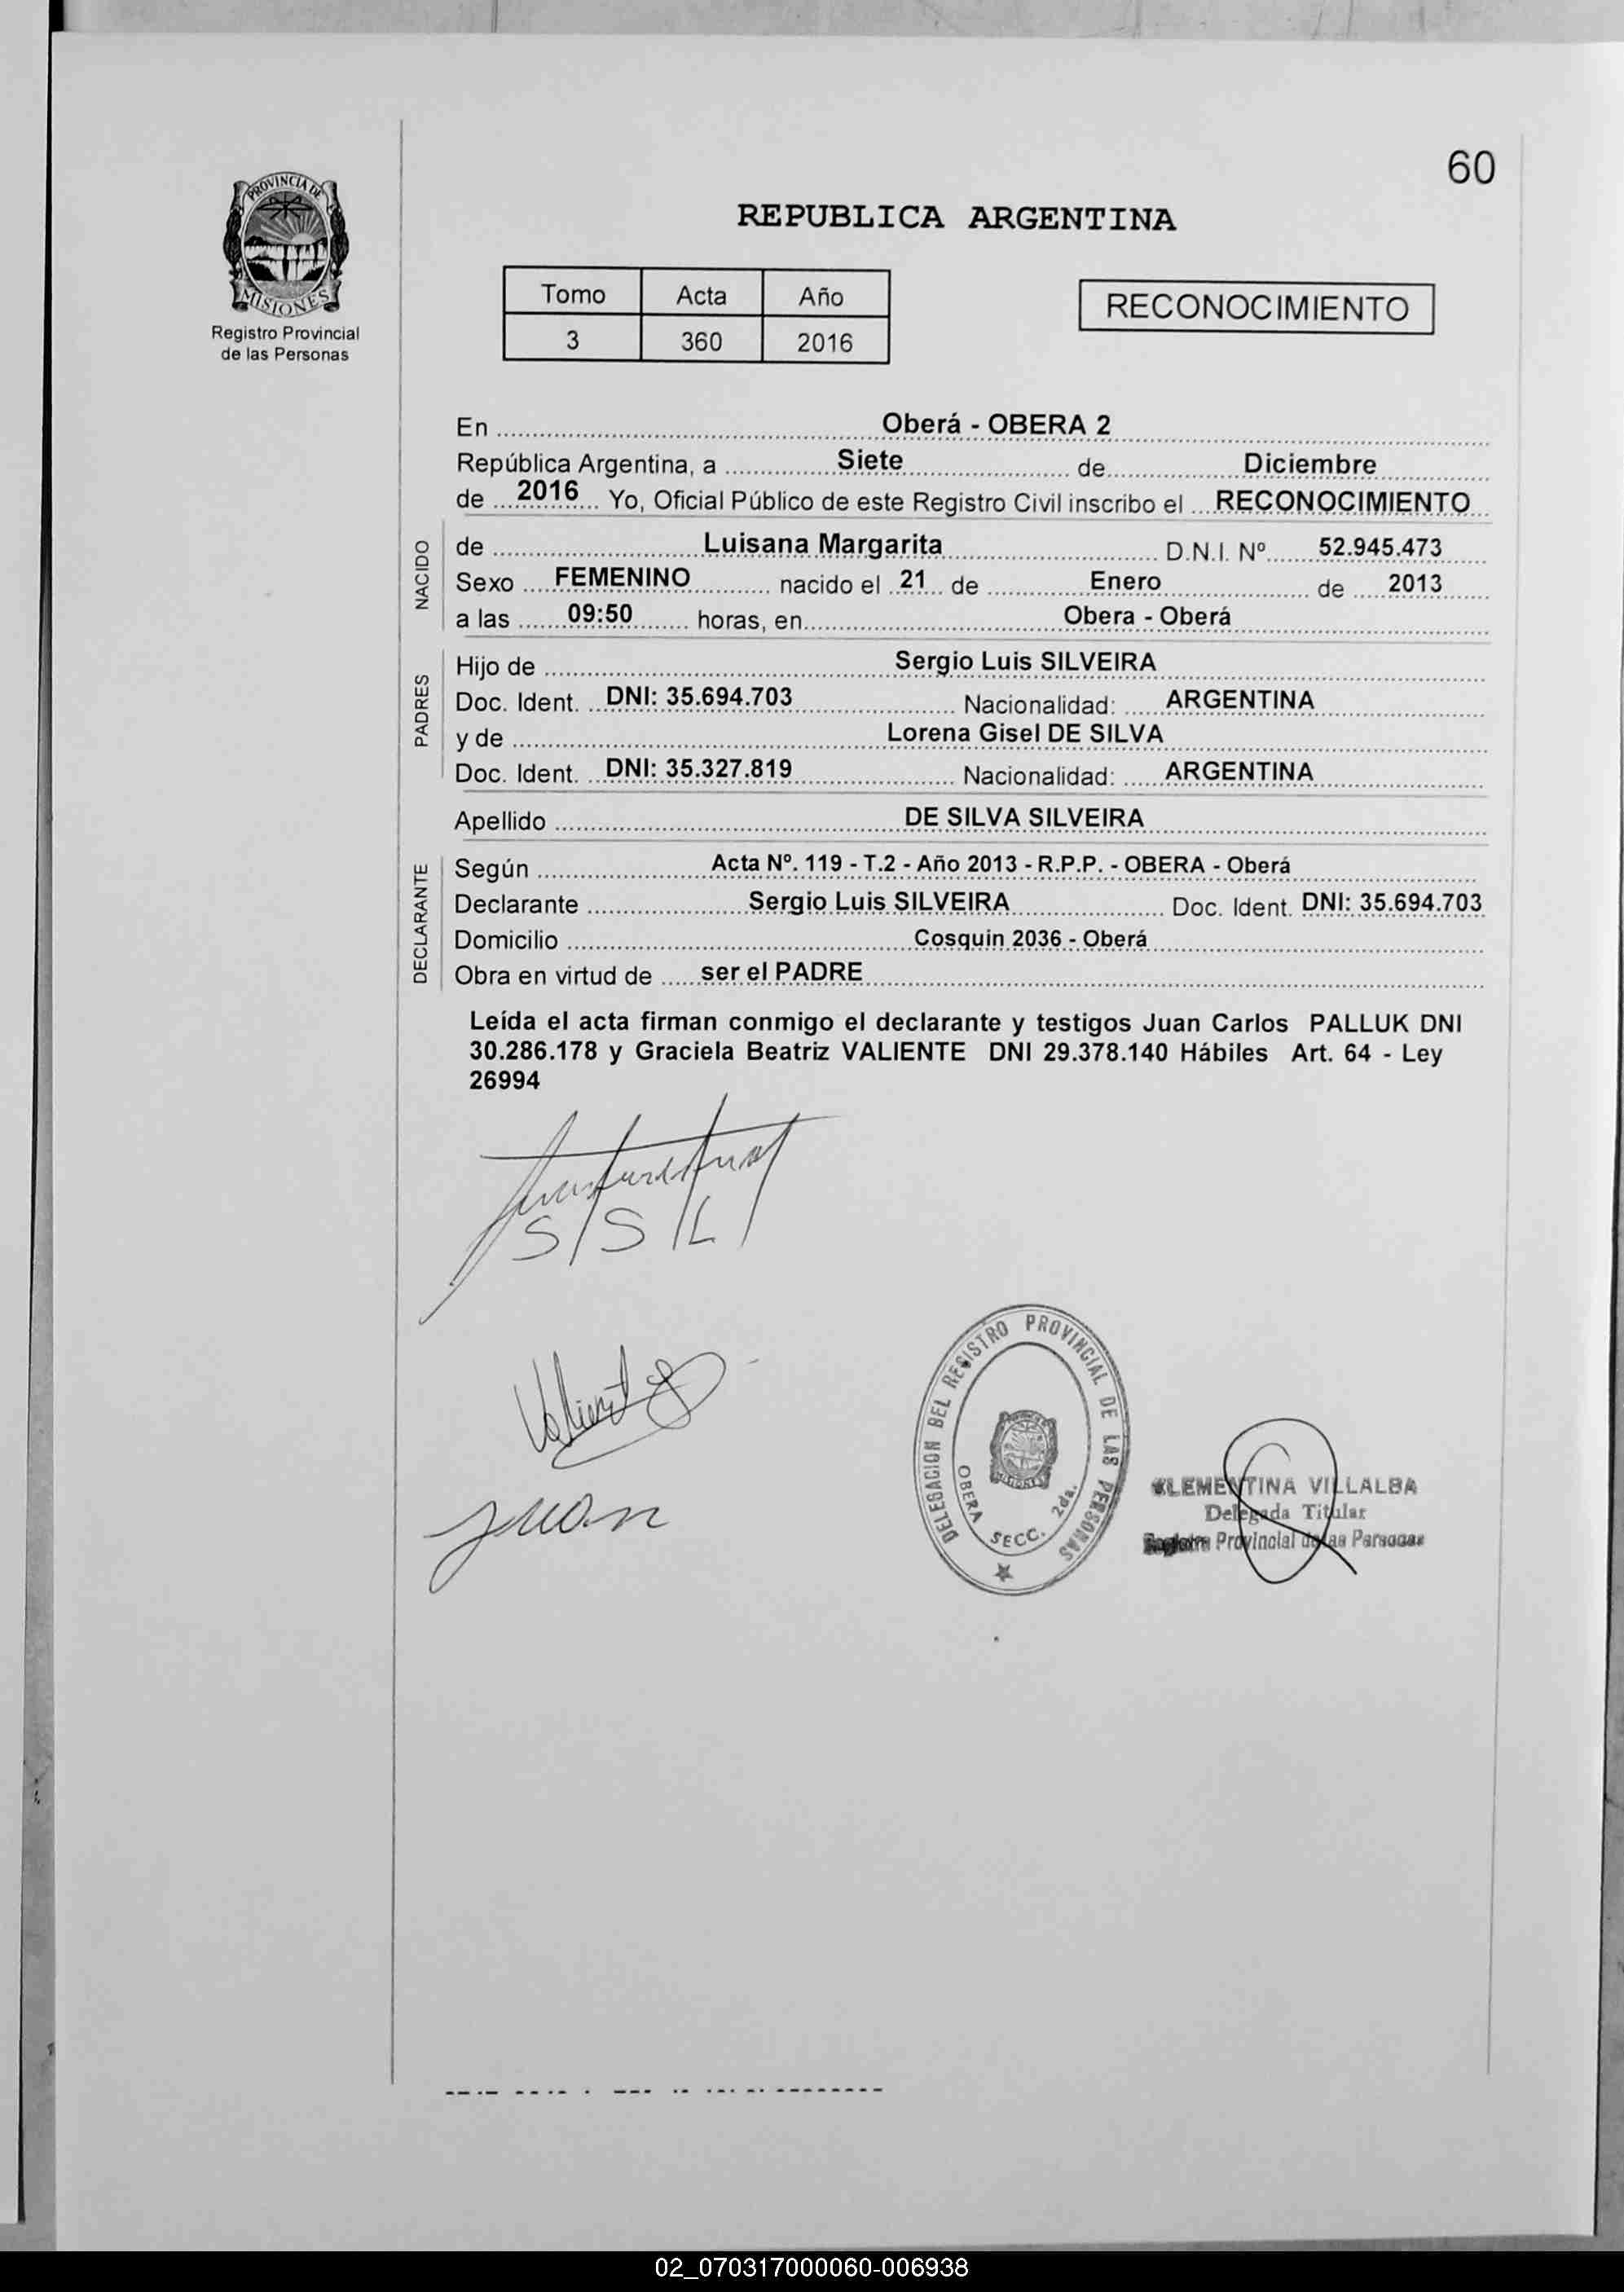 60
PROVINCIA DE
MISIONES
Registro Provincial
de las Personas
REPUBLICA ARGENTINA
Tomo Acta Año
3 360 2016
RECONOCIMIENTO
En Oberá - OBERA 2
República Argentina, a Siete de Diciembre
de 2016 Yo, Oficial Público de este Registro Civil inscribo el RECONOCIMIENTO
NACIDO
de Luisana Margarita D.N.I. Nº 52.945.473
Sexo FEMENINO nacido el 21 de Enero de 2013
a las 09:50 horas, en Obera - Oberá
PADRES
Hijo de Sergio Luis SILVEIRA
Doc. Ident. DNI: 35.694.703 Nacionalidad: ARGENTINA
y de Lorena Gisel DE SILVA
Doc. Ident. DNI: 35.327.819 Nacionalidad: ARGENTINA
Apellido DE SILVA SILVEIRA
DECLARANTE
Según Acta Nº. 119 - T.2 - Año 2013 - R.P.P. - OBERA - Oberá
Declarante Sergio Luis SILVEIRA Doc. Ident. DNI: 35.694.703
Domicilio Cosquin 2036 - Oberá
Obra en virtud de ser el PADRE
Leída el acta firman conmigo el declarante y testigos Juan Carlos PALLUK DNI
30.286.178 y Graciela Beatriz VALIENTE DNI 29.378.140 Hábiles Art. 64 - Ley
26994
S/S/L
Valiente
juan
DELEGACION DEL REGISTRO PROVINCIAL DE LAS PERSONAS
OBERA SECC. 2da.
MISIONES
CLEMENTINA VILLALBA
Delegada Titular
Registro Provincial de las Personas
02_070317000060-006938